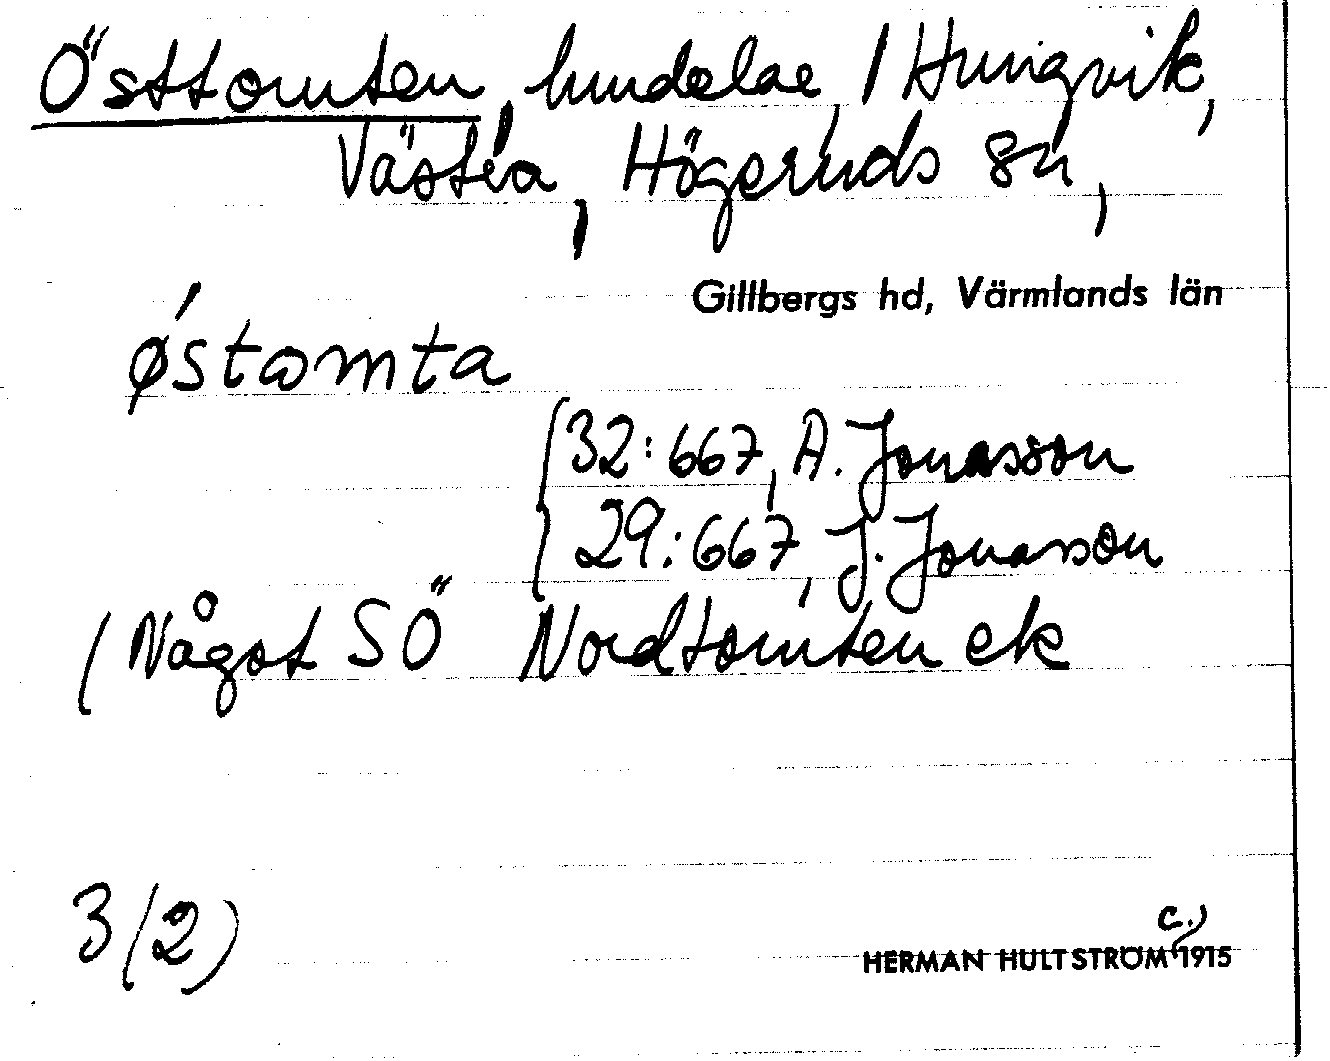 Östtomten, hmdelar, / Hungvik,
Västra, Högeruds sn,
Gillbergs hd, Värmlands län
ǿstomta
32:667, A. Jonasson
29:667, J. Jonasson
( Något SÖ Nordtomten ek
3 (2)
c.)
HERMAN HULTSTRÖM 1915